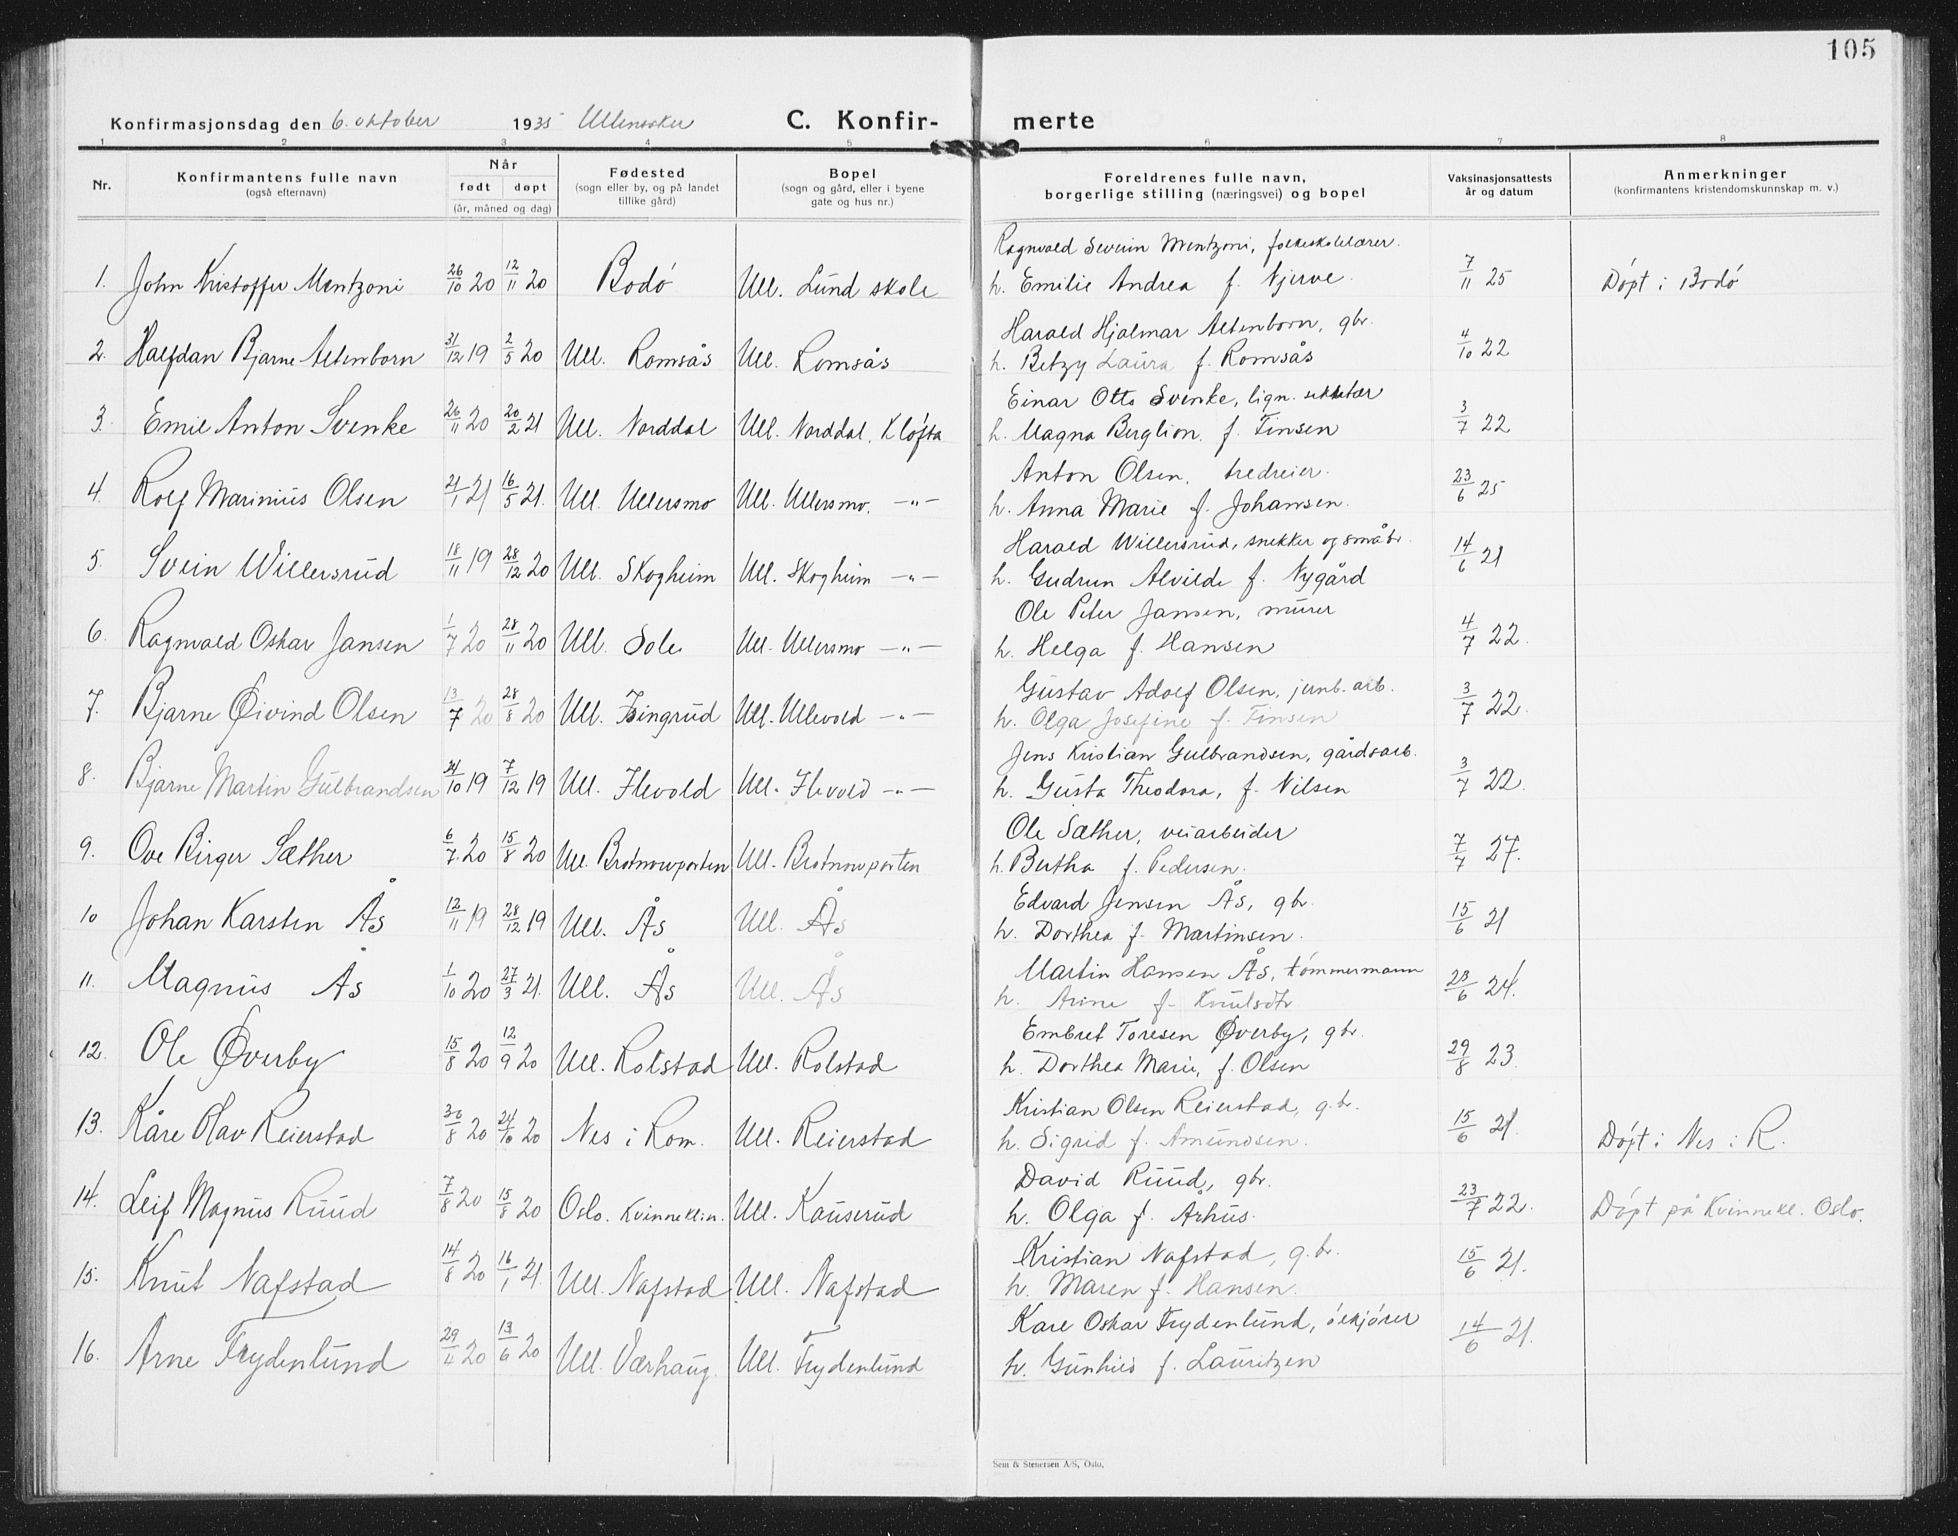 105
Konfirmasjonsdag den 6. oktober 1935 Ullensaker C. Konfir- merte
1 2 3 4 5 6 7 8
Nr. Konfirmantens fulle navn (også efternavn) Når født døpt (år, måned og dag) Fødested (sogn eller by, og på landet tillike gård) Bopel (sogn og gård, eller i byene gate og hus nr.) Foreldrenes fulle navn, borgerlige stilling (næringsvei) og bopel Vaksinasjonsattests år og datum Anmerkninger (konfirmantens kristendomskunnskap m. v.)
Ragnvald Severin Mentzoni, folkeskolelærer.
1. John Kristoffer Mentzoni 26/10 20 12/11 20 Bodø Ull. Lund skole h. Emilie Andrea f. Njerve. 7/11 25 Døpt i Bodø
Harald Hjalmar Altenborn, gbr.
2. Halfdan Bjarne Altenborn 31/12 19 2/5 20 Ull. Romsås Ull. Romsås h. Betzy Laura f. Romsås 4/10 22
Einar Otto Svenke, lign. sekretær
3. Emil Anton Svenke 26/11 20 20/2 21 Ull. Norddal Ull. Norddal, Kløfta h. Magna Berglion, f. Finsen 3/7 22
Anton Olsen, tredreier.
4. Rolf Marinius Olsen 21/1 21 16/5 21. Ull. Ullersmo Ull. Ullersmo. -"- h. Anna Marie f. Johansen. 23/6 25
Harald Willersrud, snekker og småbr.
5. Svein Willersrud 18/11 19 28/12 20 Ull. Skogheim Ull. Skogheim -"- h. Gudrun Alvilde f. Nygård 14/6 21
Ole Peter Jansen, murer
6. Ragnvald Oskar Jansen 1/7 20 28/11 20 Ull. Sole Ull. Ullersmo -"- h. Helga f. Hansen 4/7 22.
Gustav Adolf Olsen, jernb. arb.
7. Bjarne Øivind Olsen 13/7 20 28/8 20 Ull. Ull. Ullevold -"- h. Olga Josefine f. Finsen 3/7 22.
Jens Kristian Gulbrandsen, gårdsarb.
8. Bjarne Martin Gulbrandsen 24/10 19 7/12 19 Ull. Ilevold Ull. Ilevold -"- h. Gusta Theodora, f. Nilsen 3/7 22.
Ole Sæther, veiarbeider
9. Ove Birger Sæther 6/7 20 15/8 20 Ull. Brotnowporten Ull. Brotnowporten h. Bertha f. Pedersen. 7/7 27.
Edvard Jensen Ås, gbr.
10 Johan Karsten Ås 12/11 19 28/12 19 Ull. Ås Ull. Ås h. Dorthea f. Martinsen. 15/6 21
Martin Hansen Ås, tømmermann
11. Magnus Ås 1/10 20 27/3 21. Ull. Ås Ull. Ås h. Arine f. Knutsdtr 28/6 24.
Embret Toresen Øverby, gbr.
12. Ole Øverby 15/8 20 12/9 20 Ull. Rolstad Ull. Rolstad h. Dorthea Marie, f. Olsen 29/8 23.
Kristian Olsen Reierstad, g.br.
13. Kåre Olav Reierstad 30/8 20 24/10 20 Nes i Rom. Ull. Reierstad h. Sigrid f. Amundsen. 15/6 21. Døpt i Nes i R.
David Ruud, gbr.
14. Leif Magnus Ruud 7/8 20 15/8 20 Oslo. Kvinneklin. Ull. Kauserud h. Olga f. Århus. 23/7 22. Døpt på Kvinnekl. Oslo.
Kristian Nafstad, g.br.
15. Knut Nafstad 14/8 20 16/1 21. Ull. Nafstad Ull. Nafstad h. Maren f. Hansen. 15/6 21.
Kare Oskar Frydenlund, ølkjører
16. Arne Frydenlund 29/4 20 13/6 20 Ull. Værhaug. Ull. Frydenlund h. Gunhild f. Lauritzen 14/6 21.
Sem & Stenersen A/S, Oslo.